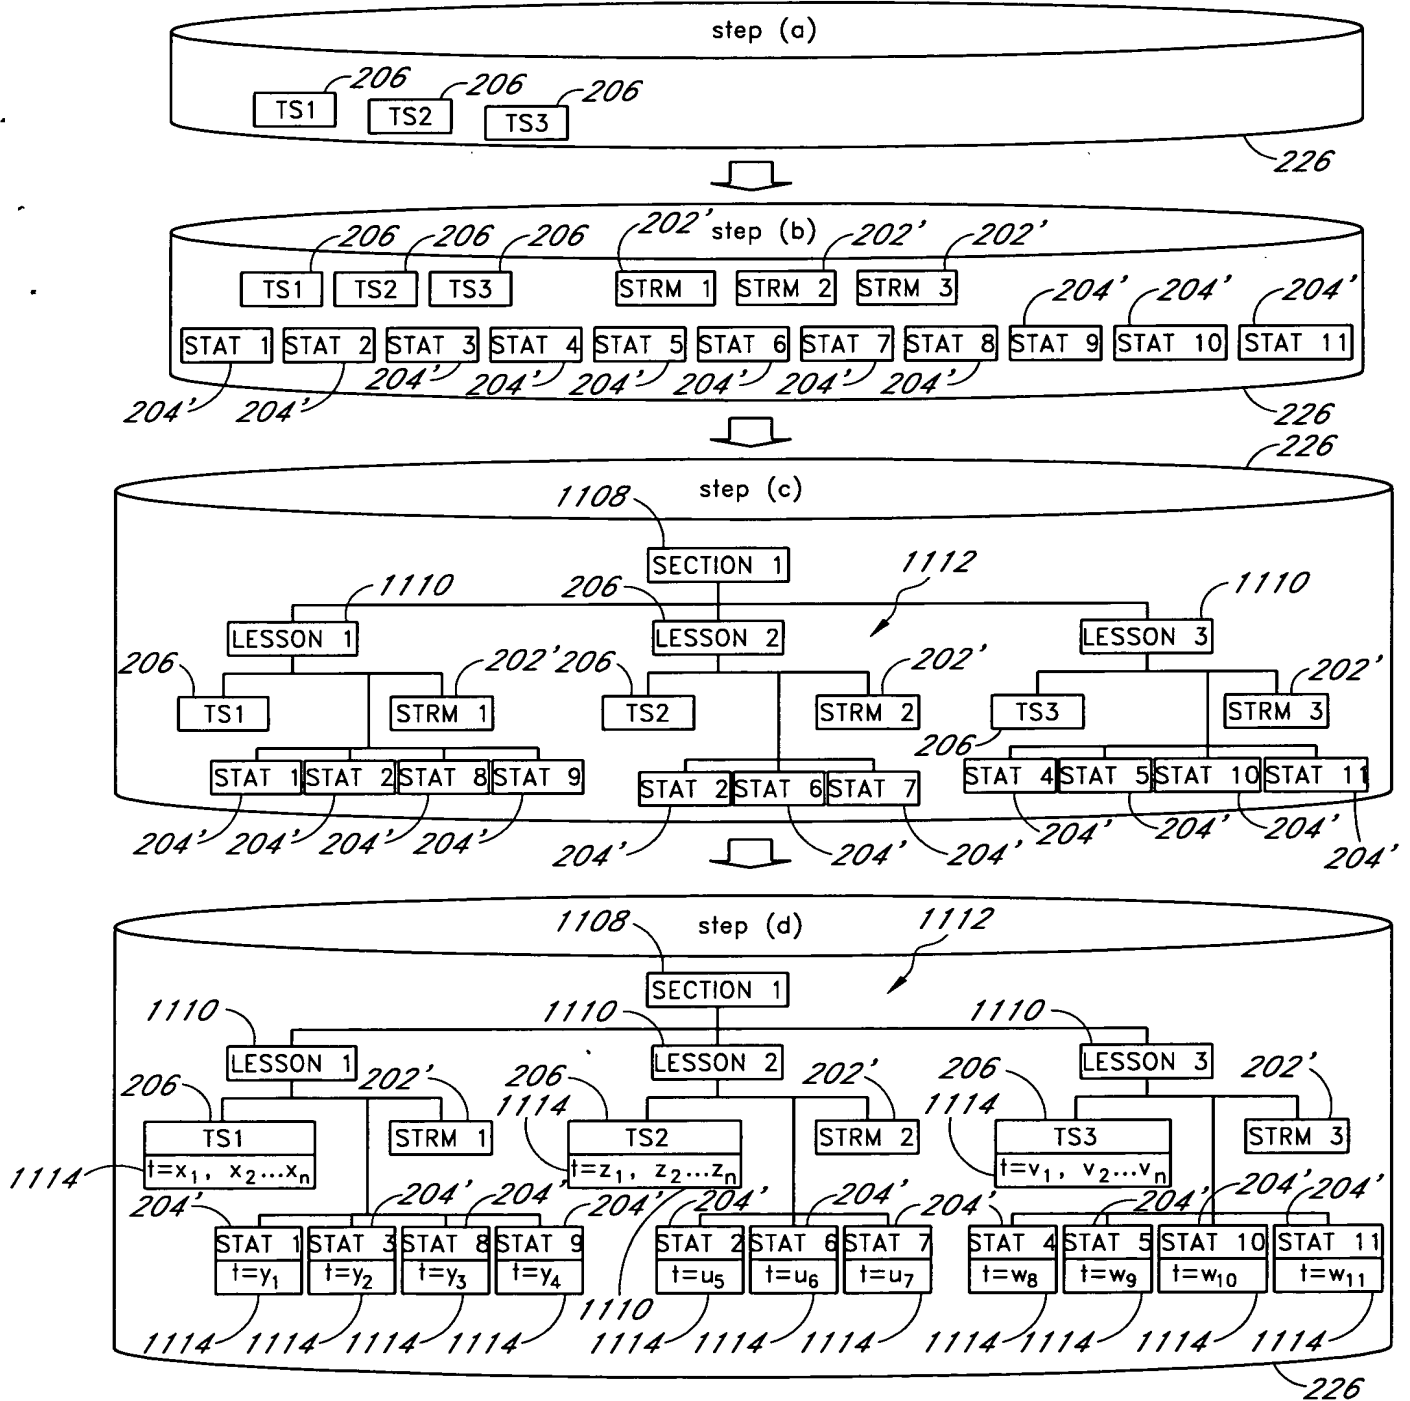 step (a)
206 206 206
TS1 TS2 TS3
226
step (b)
206 206 206 202' 202' 202'
TS1 TS2 TS3 STRM 1 STRM 2 STRM 3
204' 204' 204'
STAT 1 STAT 2 STAT 3 STAT 4 STAT 5 STAT 6 STAT 7 STAT 8 STAT 9 STAT 10 STAT 11
204' 204' 204' 204' 204' 204' 204' 204'
226
226
step (c)
1108
SECTION 1
1112
1110 206 1110
LESSON 1 LESSON 2 LESSON 3
206 202' 206 202' 202'
TS1 STRM 1 TS2 STRM 2 TS3 STRM 3
206
STAT 1 STAT 2 STAT 8 STAT 9 STAT 2 STAT 6 STAT 7 STAT 4 STAT 5 STAT 10 STAT 11
204' 204' 204' 204' 204' 204' 204' 204' 204' 204' 204'
step (d)
1108 1112
SECTION 1
1110 1110 1110
LESSON 1 LESSON 2 LESSON 3
206 202' 206 202' 206 202'
1114 1114
TS1 STRM 1 TS2 STRM 2 TS3 STRM 3
1114 t=x1, x2...xn t=z1, z2...zn t=v1, v2...vn
204' 204' 204' 204' 204' 204' 204' 204' 204' 204' 204'
STAT 1 STAT 3 STAT 8 STAT 9 STAT 2 STAT 6 STAT 7 STAT 4 STAT 5 STAT 10 STAT 11
t=y1 t=y2 t=y3 t=y4 t=u5 t=u6 t=u7 t=w8 t=w9 t=w10 t=w11
1110
1114 1114 1114 1114 1114 1114 1114 1114 1114 1114 1114
226